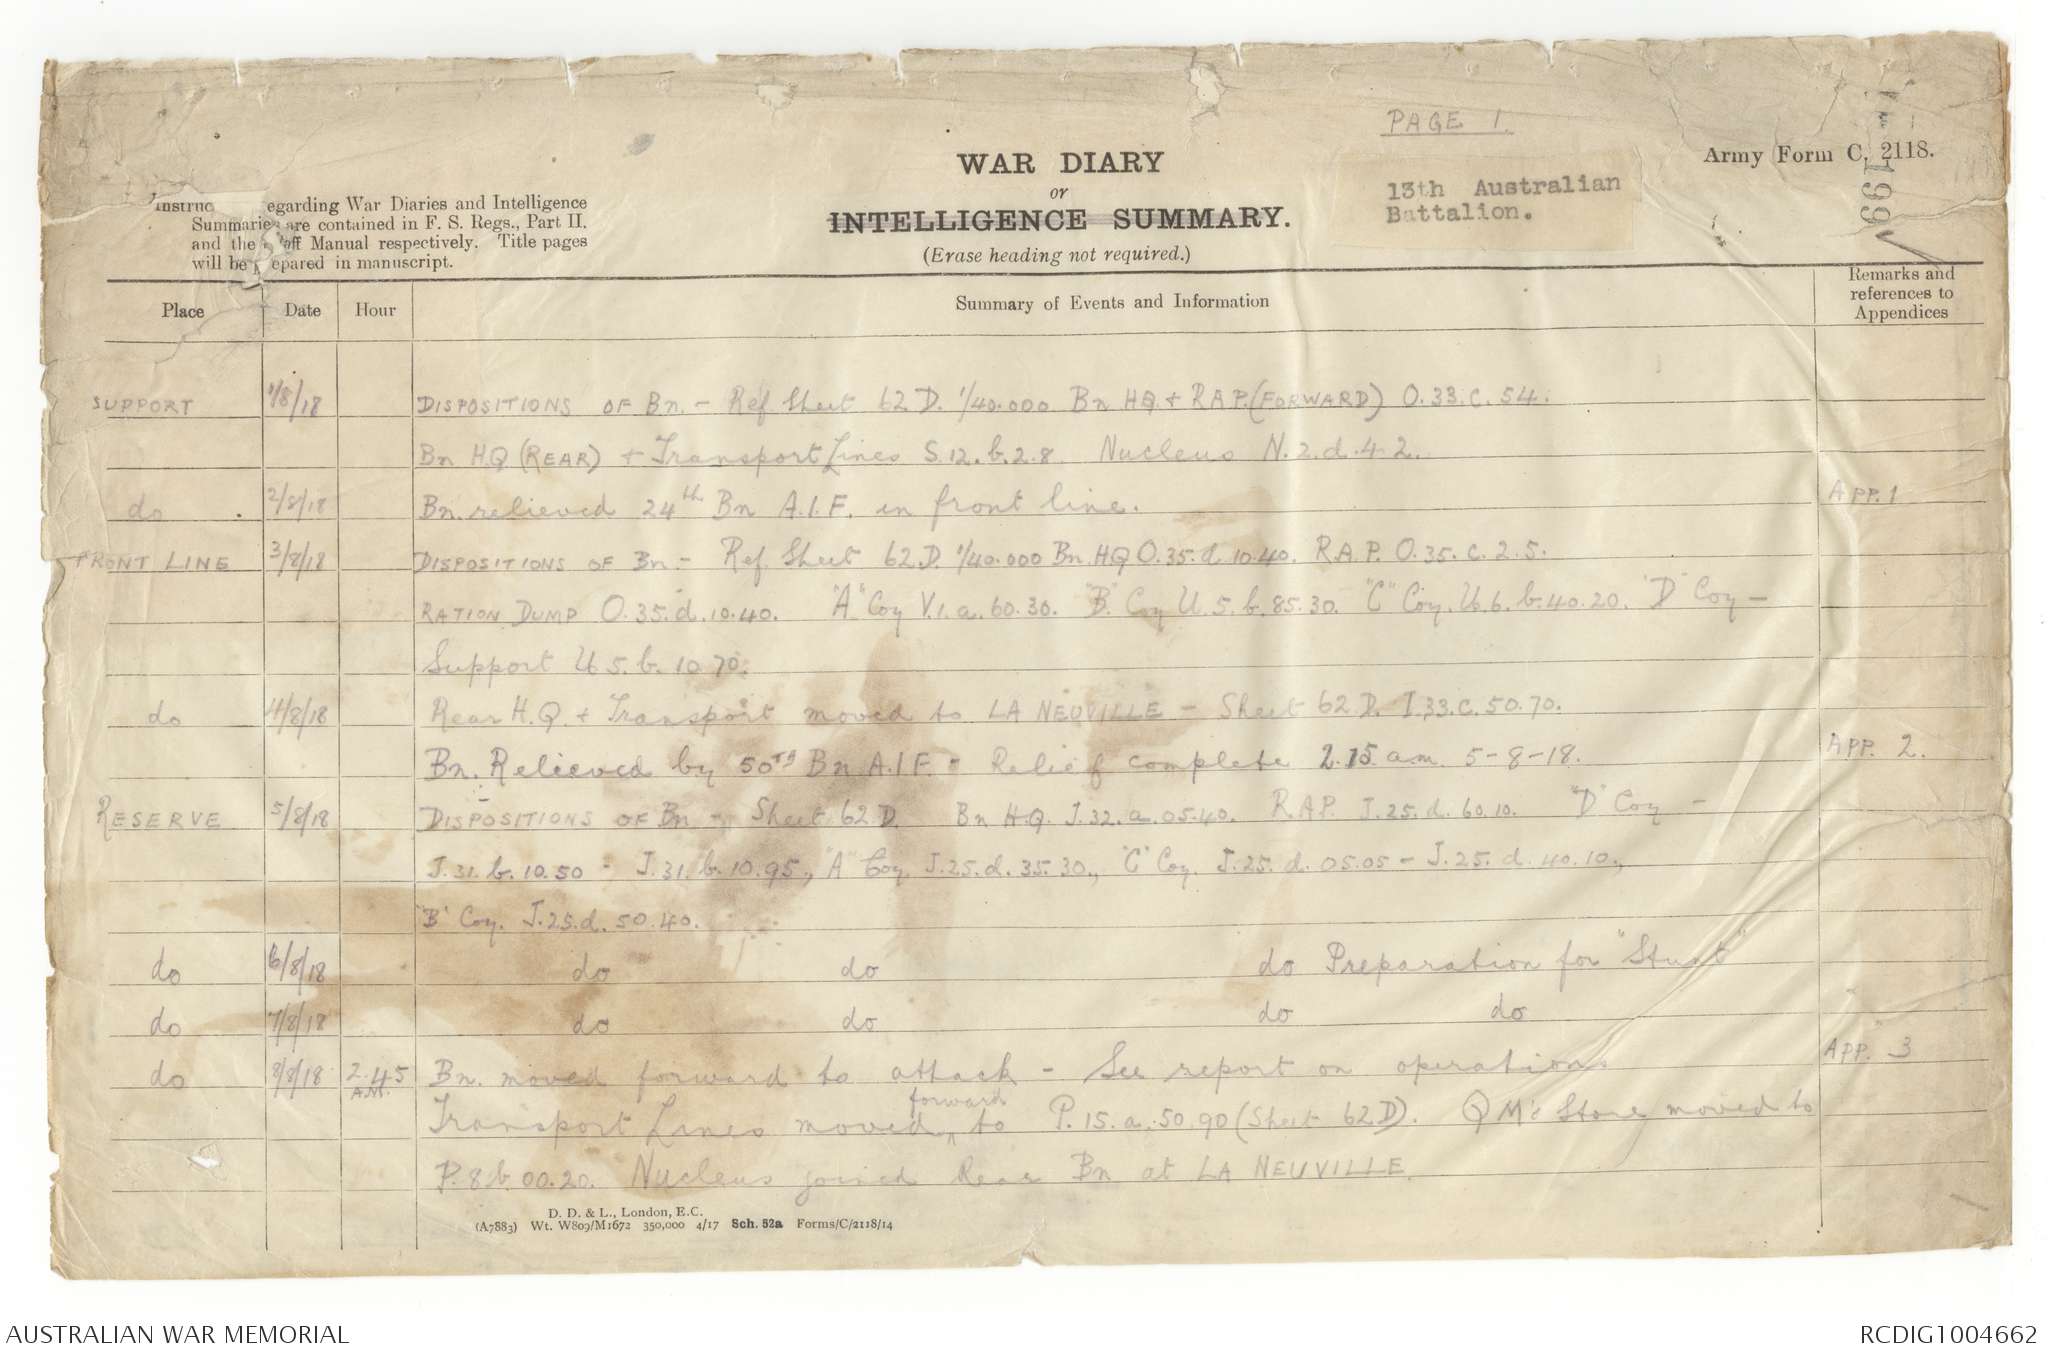 PAGE 1.
Army Form C. 2118.
WAR DIARY
or
INTELLIGENCE SUMMARY.
(Erase heading not required.)
13th Australian
Battalion.
Instruc egarding War Diaries and Intelligence
Summaries are contained in F. S. Regs., Part II.
and the Staff Manual respectively. Title pages
will be prepared in manuscript.
Place Date Hour Summary of Events and Information Remarks and references to Appendices
SUPPORT 1/8/18 DISPOSITIONS OF Bn. - Ref. Sheet 62 D. 1/40.000 Bn HQ + R.A.P. (FORWARD) O.33.c.54.
Bn H.Q (REAR) + Transport Lines S.12.b.2.8 Nucleus N.2.d.4.2.
do 2/8/18 Bn. relieved 24th Bn A.I.F. in front line. APP. 1
FRONT LINE 3/8/18 DISPOSITIONS OF Bn - Ref. Sheet 62 D. 1/40.000 Bn HQ O.35.d.10.40. R.A.P. O.35.c.2.5.
RATION DUMP O.35.d.10.40. "A" Coy V.1.a.60.30. "B" Coy U.5.b.85.30. "C" Coy. U.6.b.40.20. "D" Coy -
Support U.5.b.10.70.
do 4/8/18 Rear H.Q. + Transport moved to LA NEUVILLE - Sheet 62.D. I.33.c.50.70.
Bn. Relieved by 50TH Bn A.I.F. - Relief complete 2.15 am. 5-8-18. APP. 2.
RESERVE 5/8/18 DISPOSITIONS OF Bn - Sheet 62 D. Bn H.Q. J.32.a.05.40. R.A.P. J.25.d.60.10. "D" Coy -
J.31.b.10.50 - J.31.b.10.95., "A" Coy. J.25.d.35.30., "C" Coy. J.25.d.05.05 - J.25.d.40.10.,
"B" Coy. J.25.d.50.40.
do 6/8/18 do do do Preparation for "Stunt"
do 7/8/18 do do do do
do 8/8/18 2.45 A.M. Bn. moved forward to attack - See report on operations APP. 3
Transport Lines moved forward to P.15.a.50.90 (Sheet 62D). QM's Store moved to
P.8.b.00.20. Nucleus joined Rear Bn at LA NEUVILLE.
D. D. & L., London, E.C.
(A7883) Wt. W809/M1672 350,000 4/17 Sch. 52a Forms/C/2118/14
AUSTRALIAN WAR MEMORIAL
RCDIG1004662